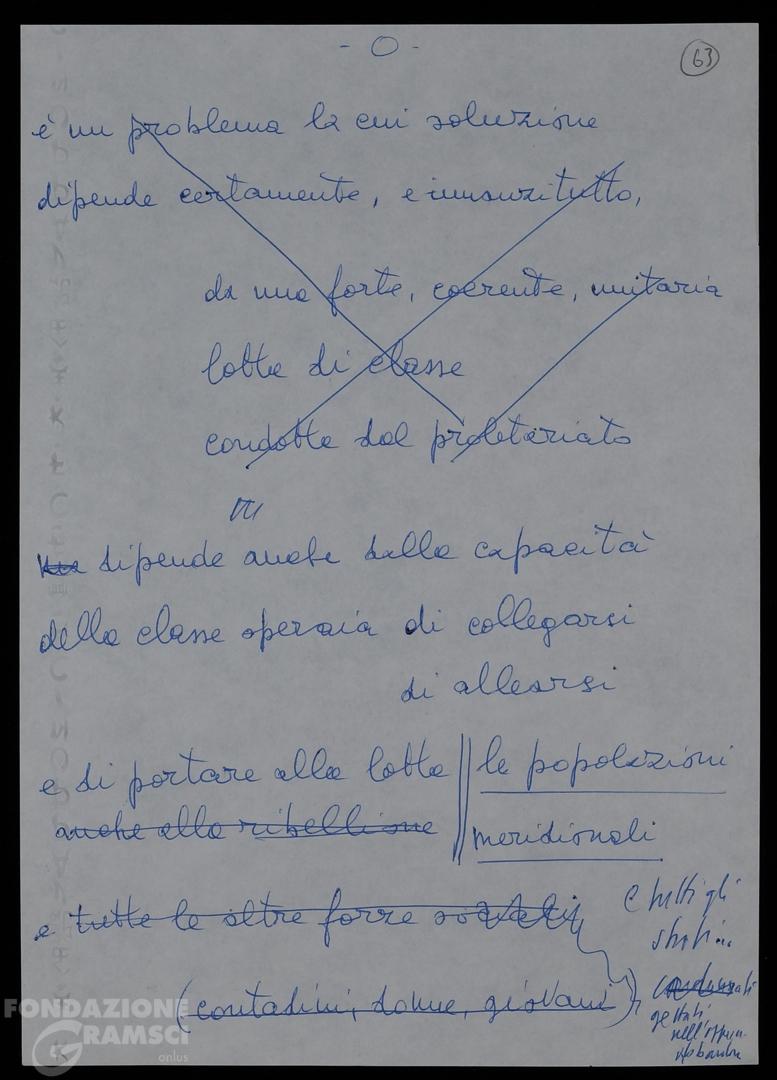 - 0 -
63
è un problema la cui soluzione
dipende certamente, e innanzitutto,
da una forte, coerente, unitaria
lotta di classe
condotta dal proletariato
dipende anche dalla capacità
della classe operaia di collegarsi
di allearsi
e di portare alla lotta le popolazioni
anche alla ribellione meridionali
e tutte le altre forze sociali
e tutti gli
strati...
(contadini, donne, giovani)
gettati
nell'
FONDAZIONE
GRAMSCI
onlus